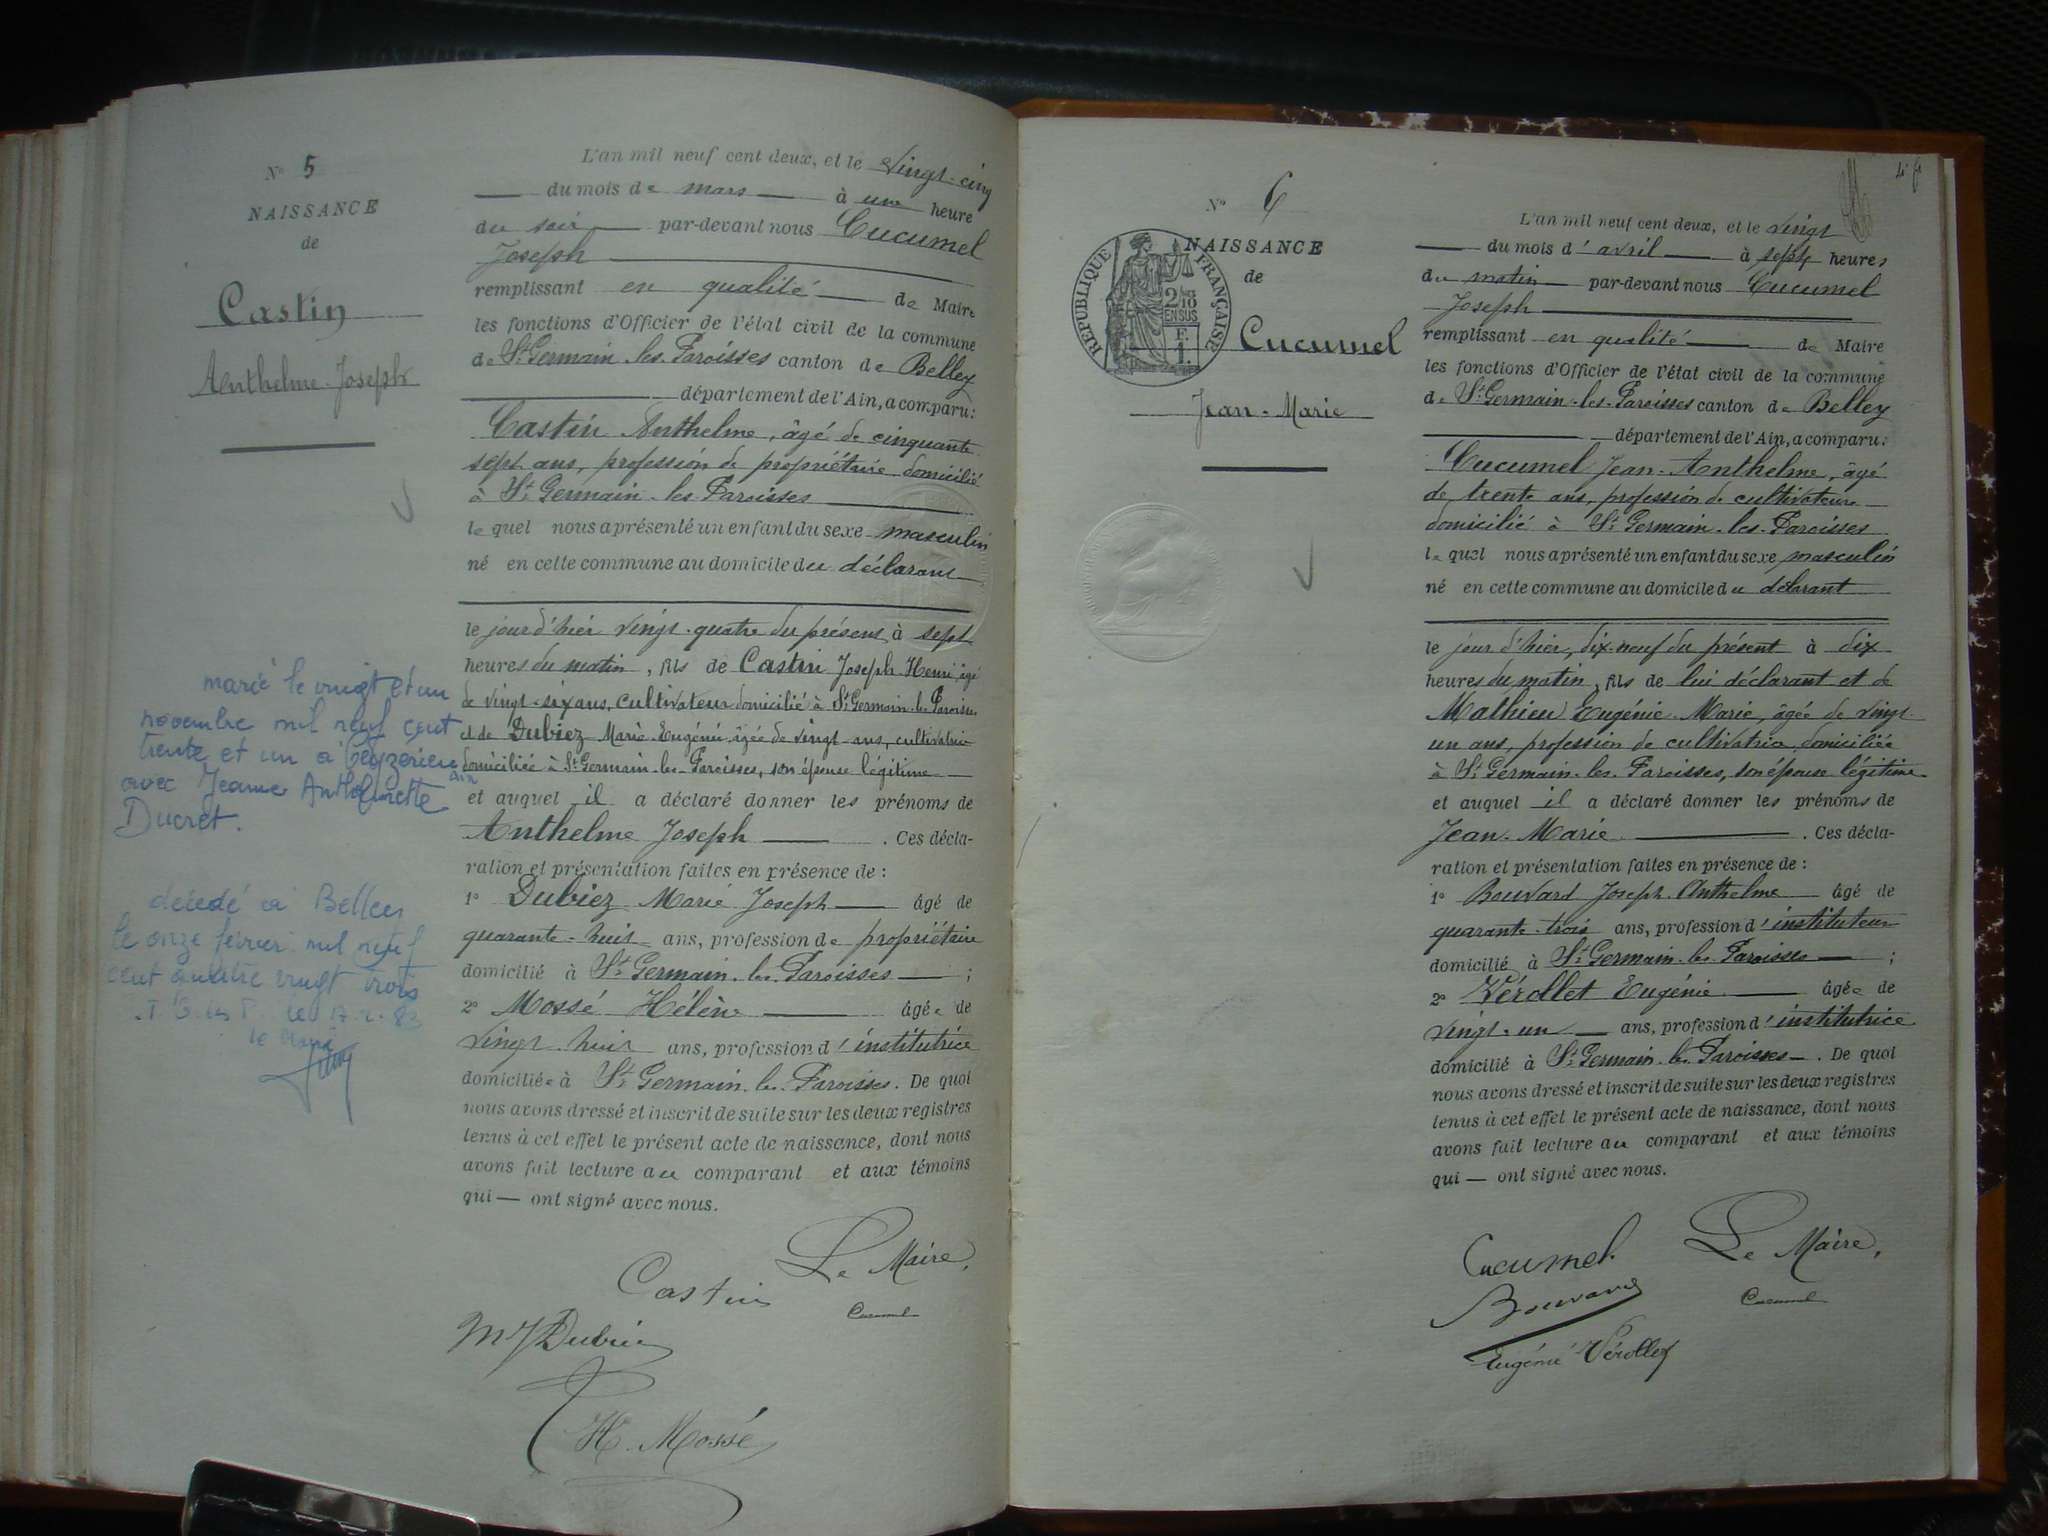 N° 5
NAISSANCE
de
Castin
Anthelme-Joseph
marié le vingt et un
novembre mil neuf cent
trente et un à Ceyzerieu
Ain
avec Jeanne Antoinette
Ducret.
décédé à Belley
le onze février mil neuf
cent quatre vingt trois
le 17.2.83
le Maire
L'an mil neuf cent deux, et le vingt-cinq
du mois de mars à une heure
du soir par-devant nous Cucumel
Joseph
remplissant en qualité de Maire
les fonctions d'Officier de l'état civil de la commune
de St Germain-les-Paroisses canton de Belley
département de l'Ain, a comparu:
Castin Anthelme, âgé de cinquante
sept ans, profession de propriétaire domicilié
à St Germain-les-Paroisses
lequel nous a présenté un enfant du sexe masculin
né en cette commune au domicile du déclarant
le jour d'hier vingt-quatre du présent à sept
heures du matin, fils de Castin Joseph-Henri, âgé
de vingt-six ans, cultivateur domicilié à St Germain-les-Paroisses
et de Dubiez Marie-Eugénie, âgée de vingt ans, cultivatrice
domiciliée à St Germain-les-Paroisses, son épouse légitime
et auquel il a déclaré donner les prénoms de
Anthelme Joseph . Ces décla-
ration et présentation faites en présence de :
1° Dubiez Marie Joseph âgé de
quarante-huit ans, profession de propriétaire
domicilié à St Germain-les-Paroisses ;
2° Mossé Hélène âgée de
vingt-huit ans, profession d'institutrice
domiciliée à St Germain-les-Paroisses. De quoi
nous avons dressé et inscrit de suite sur les deux registres
tenus à cet effet le présent acte de naissance, dont nous
avons fait lecture au comparant et aux témoins
qui — ont signé avec nous.
Le Maire,
Castin
Cucumel
M J Dubiez
H. Mossé
N° 6
NAISSANCE
de
RÉPUBLIQUE FRANÇAISE
2/10
EN SUS
F.
1.
Cucumel
Jean-Marie
L'an mil neuf cent deux, et le vingt
du mois d'avril à sept heures
du matin par-devant nous Cucumel
Joseph
remplissant en qualité de Maire
les fonctions d'Officier de l'état civil de la commune
de St Germain-les-Paroisses canton de Belley
département de l'Ain, a comparu:
Cucumel Jean-Anthelme, âgé
de trente ans, profession de cultivateur
domicilié à St Germain-les-Paroisses
lequel nous a présenté un enfant du sexe masculin
né en cette commune au domicile du déclarant
le jour d'hier, dix-neuf du présent à dix
heures du matin, fils de lui déclarant et de
Mathieu Eugénie-Marie, âgée de vingt-
un ans, profession de cultivatrice, domiciliée
à St Germain-les-Paroisses, son épouse légitime
et auquel il a déclaré donner les prénoms de
Jean-Marie . Ces décla-
ration et présentation faites en présence de :
1° Bouvard Joseph-Anthelme âgé de
quarante-trois ans, profession d'instituteur
domicilié à St Germain-les-Paroisses ;
2° Vérollet Eugénie âgée de
vingt-un ans, profession d'institutrice
domicilié à St Germain-les-Paroisses. De quoi
nous avons dressé et inscrit de suite sur les deux registres
tenus à cet effet le présent acte de naissance, dont nous
avons fait lecture au comparant et aux témoins
qui — ont signé avec nous.
Cucumel
Le Maire,
Bouvard
Cucumel
Eugénie Vérollet